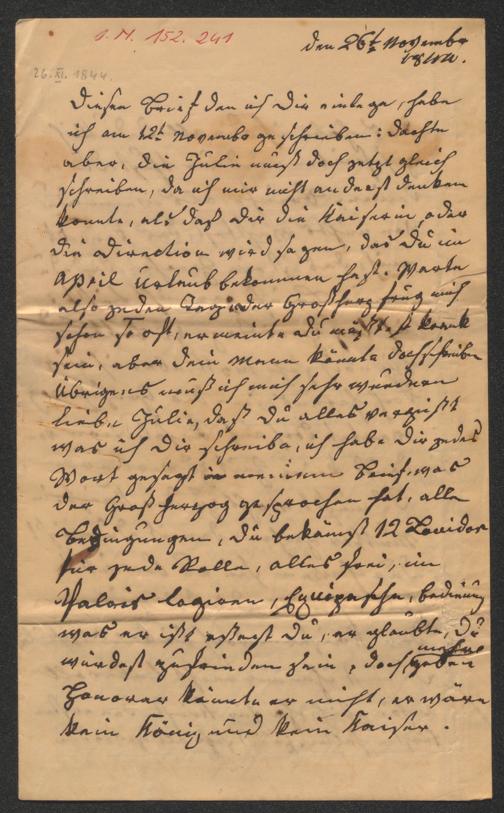 I. N. 152.241
26. XI. 1844.
den 26t Novembr
1844.
Diesen Brief den ich Dir einlege, habe
ich am 12t Novembr geschrieben: dachte
aber, die Julie muß doch jetzt gleich
schreiben, da ich mir nicht anderst denken
konnte, als daß Dir die Kaiserin oder
die Direction wird sagen, das Du im
April Urlaub bekommen hast. Warte
also jeden Tag, der Großherzog frug mich
schon so oft, er meinte Du krank
sein, aber dein Mann könnte doch schreiben
Übrigens muß ich mich sehr wundern
liebe Julie, daß Du alles vergißt
was ich Dir schreibe, ich habe Dir jedes
Wort gesagt in meinem Brief, was
der Großherzog gesprochen hat, alle
Bedingungen, Du bekämst 12 Louidor
für jede Rolle, alles frei, im
Palais logieren, Equipasche, Bedinung
was er ißt essest Du, er glaubte, Du
würdest zufrieden sein, doch mehr geben
Honorar könnte er nicht, er wäre
kein König und kein Kaiser.